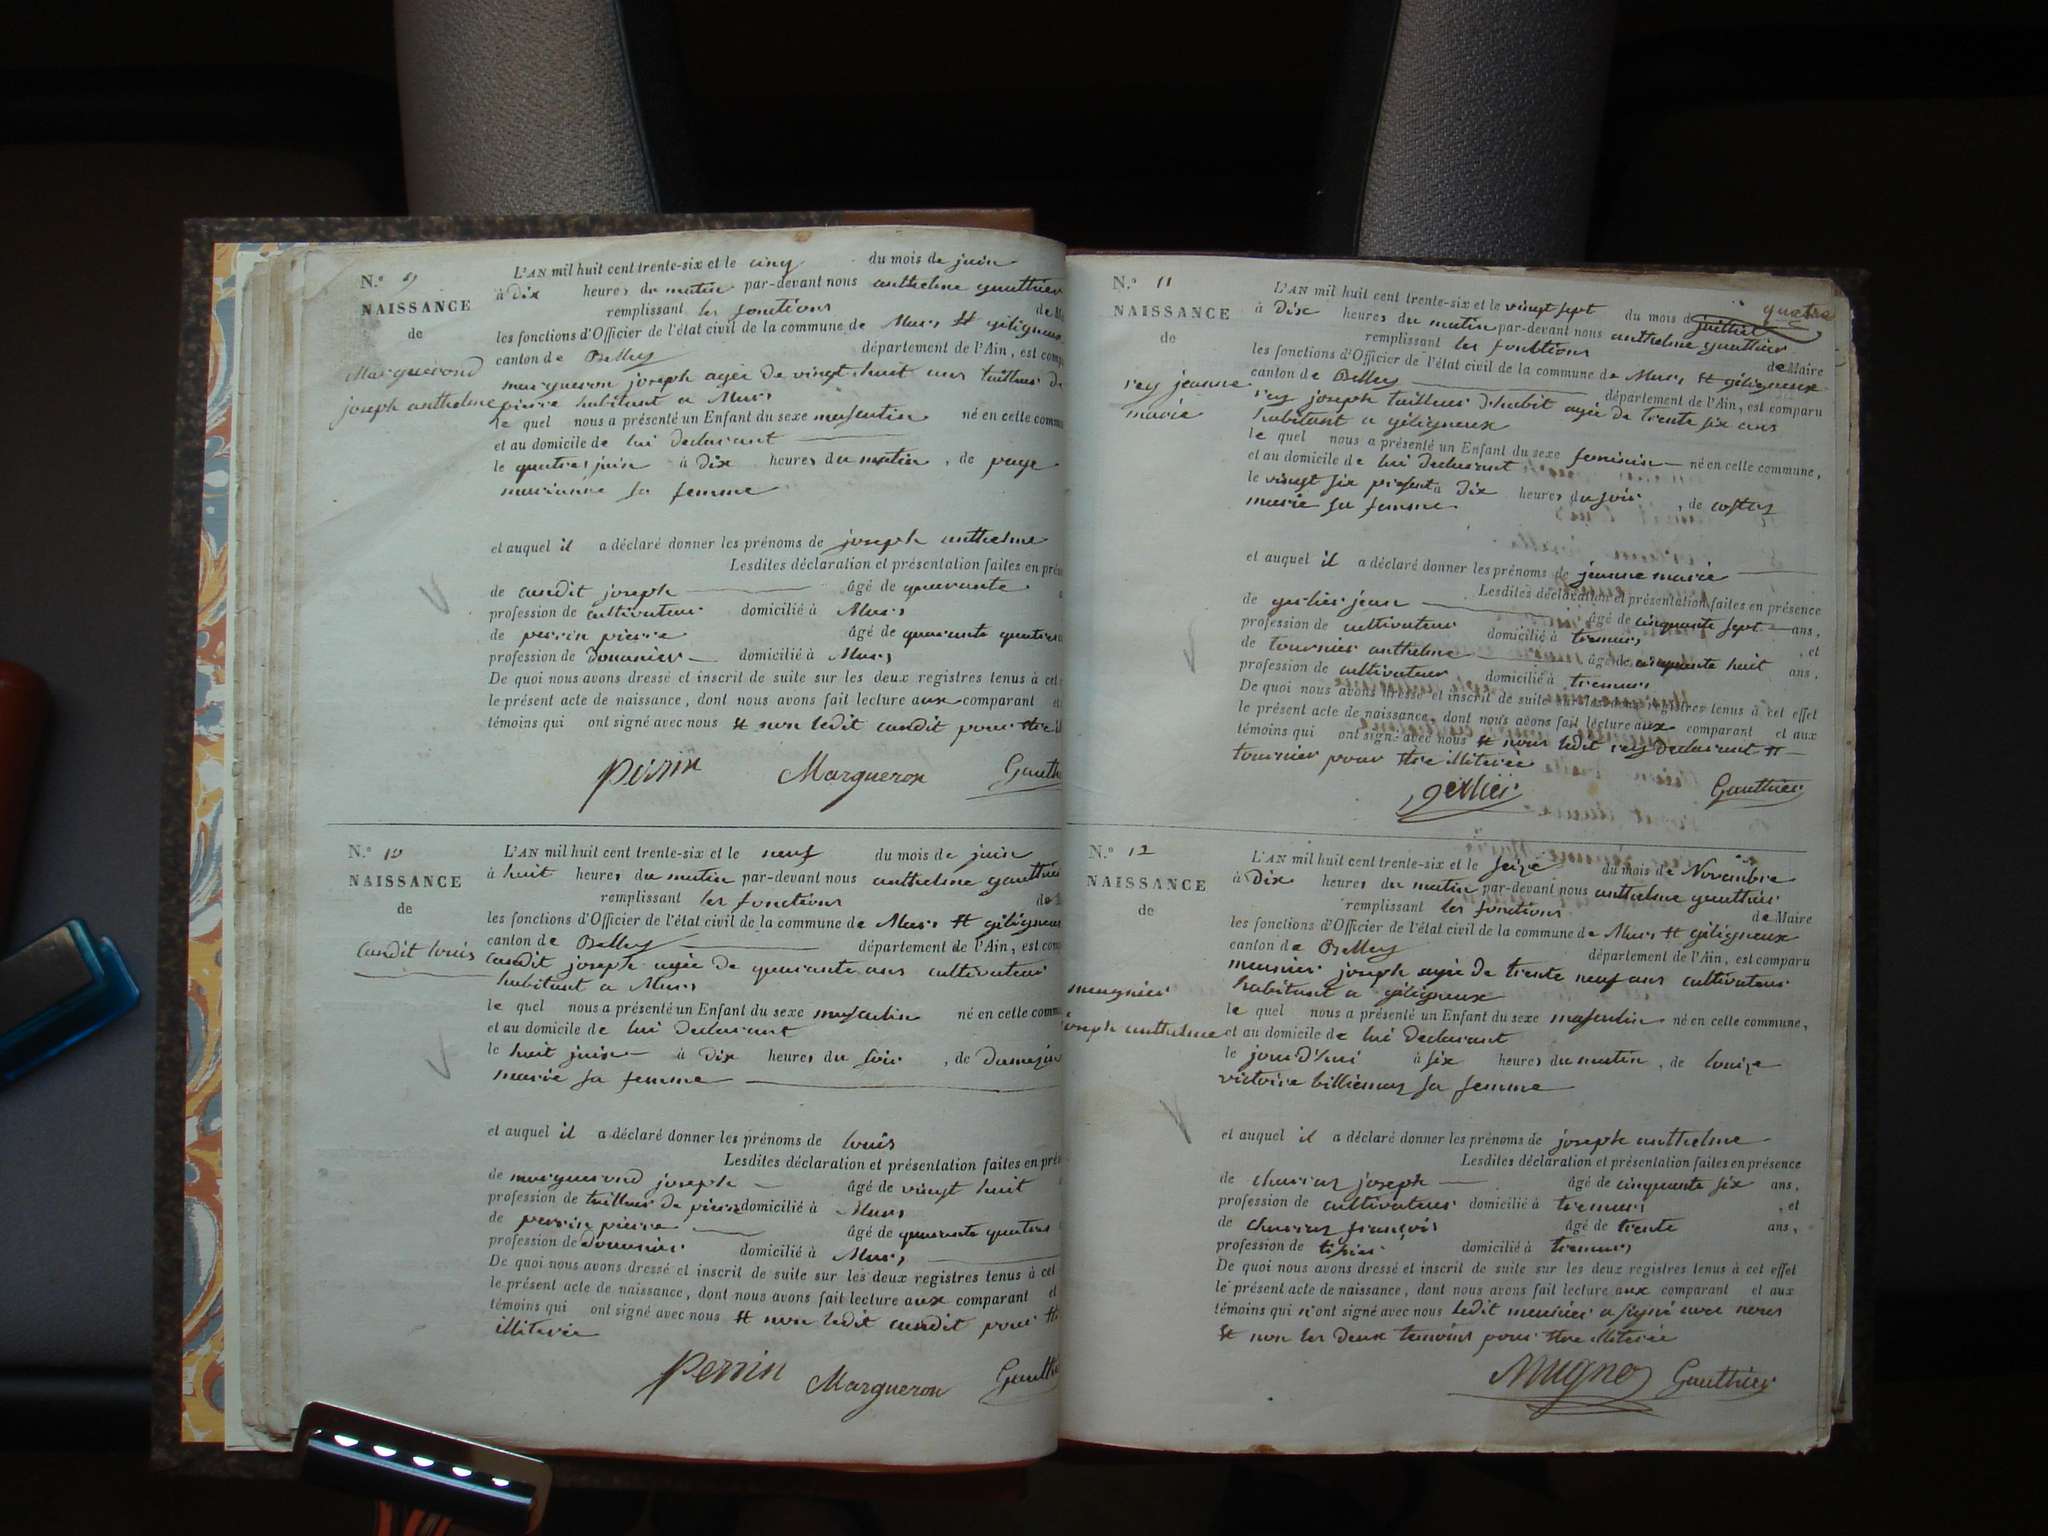 N.º 9
NAISSANCE
de
Marguerond
joseph anthelme
L'AN mil huit cent trente-six et le cinq du mois de juin
à dix heures du matin par-devant nous anthelme gauthier
remplissant les fonctions de M
les fonctions d'Officier de l'état civil de la commune de Murs et géligneux
canton de Belley département de l'Ain, est comp
margueron joseph agée de vingt huit ans tailleur de
pierre habitant a Murs
le quel nous a présenté un Enfant du sexe masculin né en cette commu
et au domicile de lui declarant
le quatres juin à dix heures du matin, de page
marianne sa femme
et auquel il a déclaré donner les prénoms de joseph anthelme
Lesdites déclaration et présentation faites en prése
de candit joseph âgé de quarante
profession de cultivateur domicilié à Murs
de perrin pierre âgé de quarante quatres
profession de douanier domicilié à Murs
De quoi nous avons dressé et inscrit de suite sur les deux registres tenus à cet
le présent acte de naissance, dont nous avons fait lecture aux comparant et
témoins qui ont signé avec nous et non ledit candit pour etre ill
Perrin Margueron Gauthi
N.º 10
NAISSANCE
de
candit louis
L'AN mil huit cent trente-six et le neuf du mois de juin
à huit heures du matin par-devant nous anthelme gauthier
remplissant les fonctions de
les fonctions d'Officier de l'état civil de la commune de Murs et géligneux
canton de Belley département de l'Ain, est comp
candit joseph agée de quarante ans cultivateur
habitant a Murs
le quel nous a présenté un Enfant du sexe masculin né en cette commu
et au domicile de lui declarant
le huit juin à dix heures du soir, de
marie sa femme
et auquel il a déclaré donner les prénoms de louis
Lesdites déclaration et présentation faites en prése
de marguerond joseph âgé de vingt huit
profession de tailleur de pierre domicilié à Murs
de perrin pierre âgé de quarante quatres
profession de douanier domicilié à Murs
De quoi nous avons dressé et inscrit de suite sur les deux registres tenus à cet
le présent acte de naissance, dont nous avons fait lecture aux comparant et
témoins qui ont signé avec nous et non ledit candit pour et
illiterée
Perrin Margueron Gauthi
N.º 11
NAISSANCE
de
rey jeanne
marie
quatre
L'AN mil huit cent trente-six et le vingt sept du mois de juillet
à dix heures du matin par-devant nous anthelme gauthier
remplissant les fonctions de Maire
les fonctions d'Officier de l'état civil de la commune de Murs et géligneux
canton de Belley département de l'Ain, est comparu
rey joseph tailleur d'habit agée de trente six ans
habitant a géligneux
le quel nous a présenté un Enfant du sexe feminin né en cette commune,
et au domicile de lui declarant
le vingt six présent à dix heures du soir, de costaz
marie sa femme
et auquel il a déclaré donner les prénoms de jeanne marie
Lesdites déclaration et présentation faites en présence
de gerlier jean âgé de cinquante sept ans,
profession de cultivateur domicilié à tremurs, et
de tournier anthelme âgé de cinquante huit ans,
profession de cultivateur domicilié à tremurs
De quoi nous avons dressé et inscrit de suite sur les deux registres tenus à cet effet
le présent acte de naissance, dont nous avons fait lecture aux comparant et aux
témoins qui ont signé avec nous et non ledit rey declarant et
tournier pour etre illiterée
gerlier Gauthier
N.º 12
NAISSANCE
de
meugnier
joseph anthelme
L'AN mil huit cent trente-six et le seize du mois de Novembre
à dix heures du matin par-devant nous anthelme gauthier
remplissant les fonctions de Maire
les fonctions d'Officier de l'état civil de la commune de Murs et géligneux
canton de Belley département de l'Ain, est comparu
meunier joseph agée de trente neuf ans cultivateur
habitant a géligneux
le quel nous a présenté un Enfant du sexe masculin né en cette commune,
et au domicile de lui declarant
le jourd'hui à six heures du matin, de louize
victoire billiemaz sa femme
et auquel il a déclaré donner les prénoms de joseph anthelme
Lesdites déclaration et présentation faites en présence
de charraz joseph âgé de cinquante six ans,
profession de cultivateur domicilié à tremurs, et
de charraz françois âgé de trente ans,
profession de domicilié à tremurs
De quoi nous avons dressé et inscrit de suite sur les deux registres tenus à cet effet
le présent acte de naissance, dont nous avons fait lecture aux comparant et aux
témoins qui n'ont signé avec nous ledit meunier a signé avec nous
et non les deux temoins pour etre illiterée
Mugne Gauthier